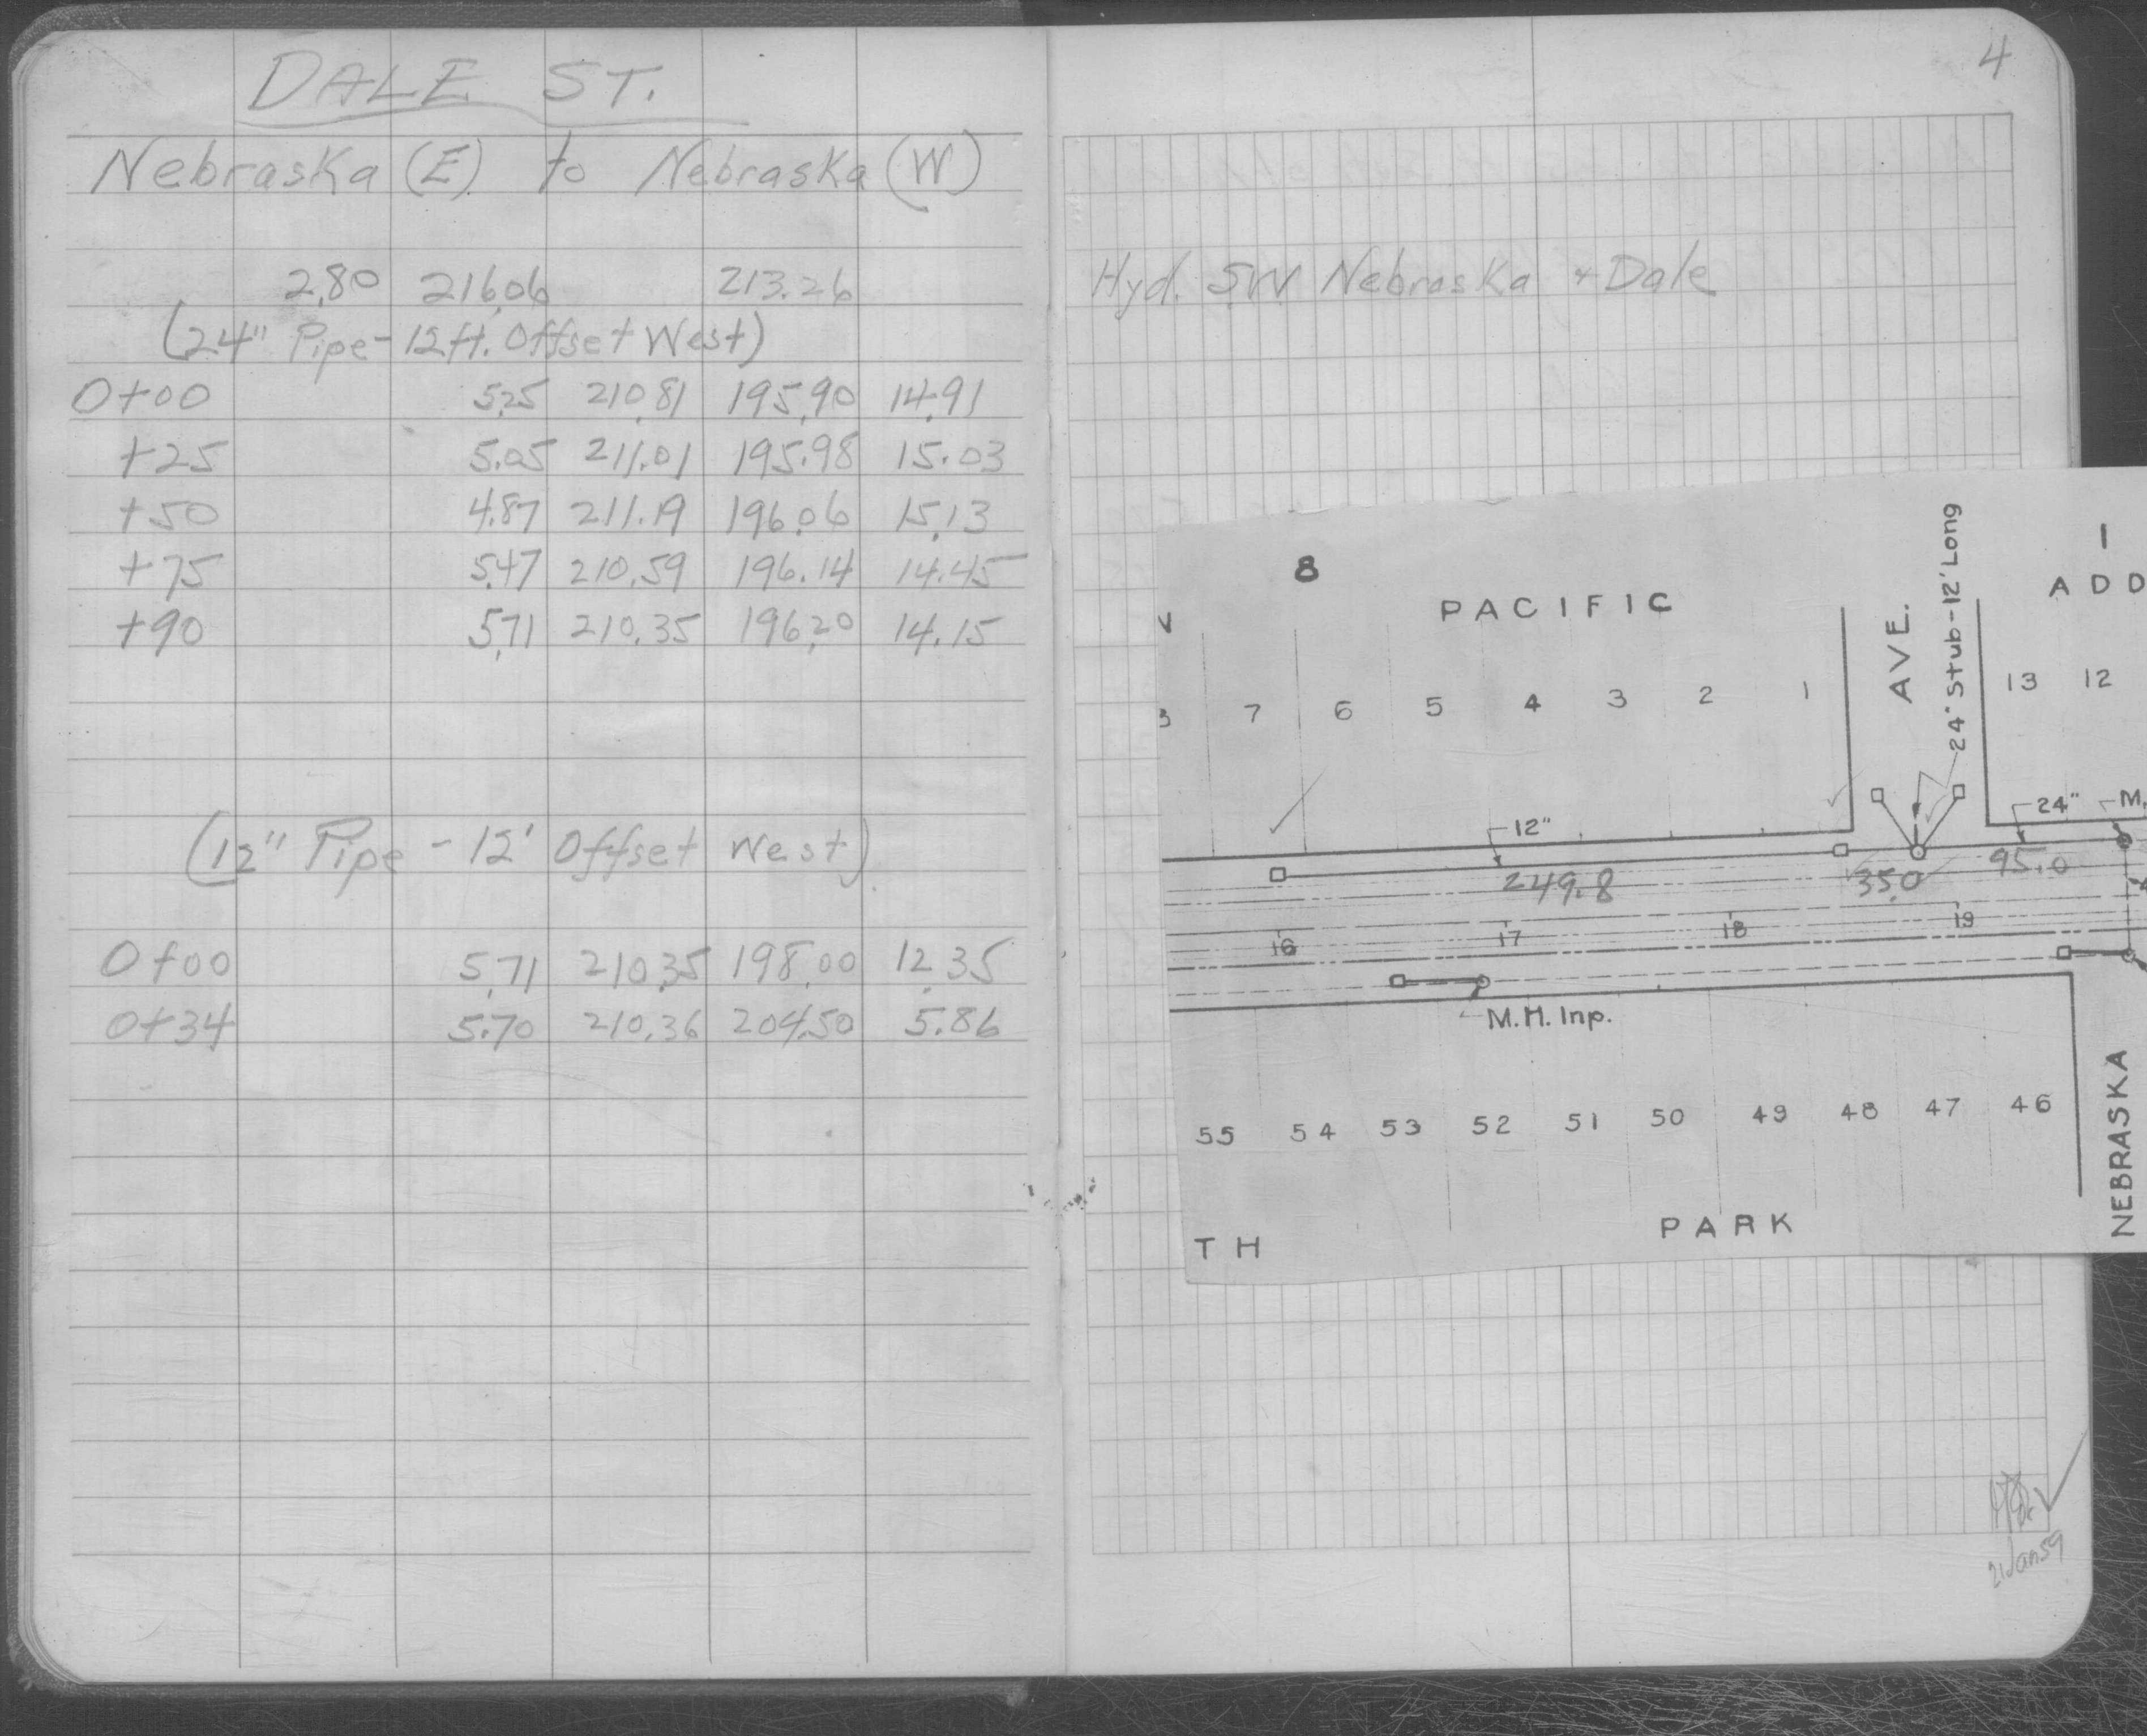 DALE ST.
Nebraska (E) to Nebraska (W)
2.80 216.06 213.26
(24" Pipe - 12 ft. Offset West)
0+00 5.25 210.81 195.90 14.91
+25 5.05 211.01 195.98 15.03
+50 4.87 211.19 196.06 15.13
+75 5.47 210.59 196.14 14.45
+90 5.71 210.35 196.20 14.15
(12" Pipe - 12' Offset West)
0+00 5.71 210.35 198.00 12.35
0+34 5.70 210.36 204.50 5.86
4
Hyd. SW Nebraska + Dale
8
PACIFIC
AVE.
24" Stub-12' Long
1
ADD
7 6 5 4 3 2 1
13 12
12"
24"
M.
249.8
35.0
95.0
16 17 18 19
M.H. Inp.
55 54 53 52 51 50 49 48 47 46
NEBRASKA
TH
PARK
21 Jan 59